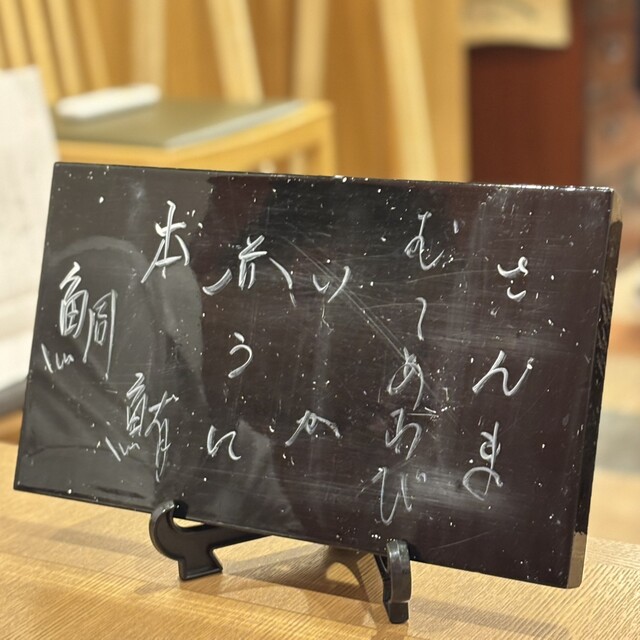 さんま
むしあわび
いか
赤うに
本鮪
鯛